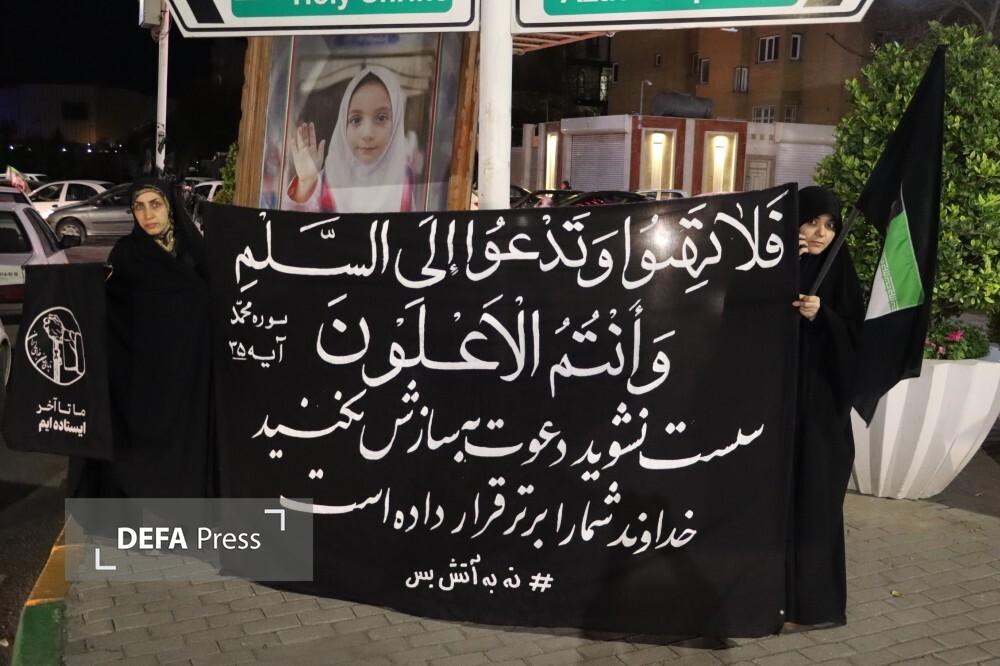 Holy Shrine
فَلا تَهِنُوا وَتَدْعُوا إِلَى السَّلْمِ
وَأَنْتُمُ الْأَعْلَوْنَ
سوره محمّد
آیه ۳۵
سست نشوید دعوت به سازش نکنید
خداوند شما را برتر قرار داده است
# نه به آتش بس
ما تا آخر
ایستاده ایم
DEFA Press